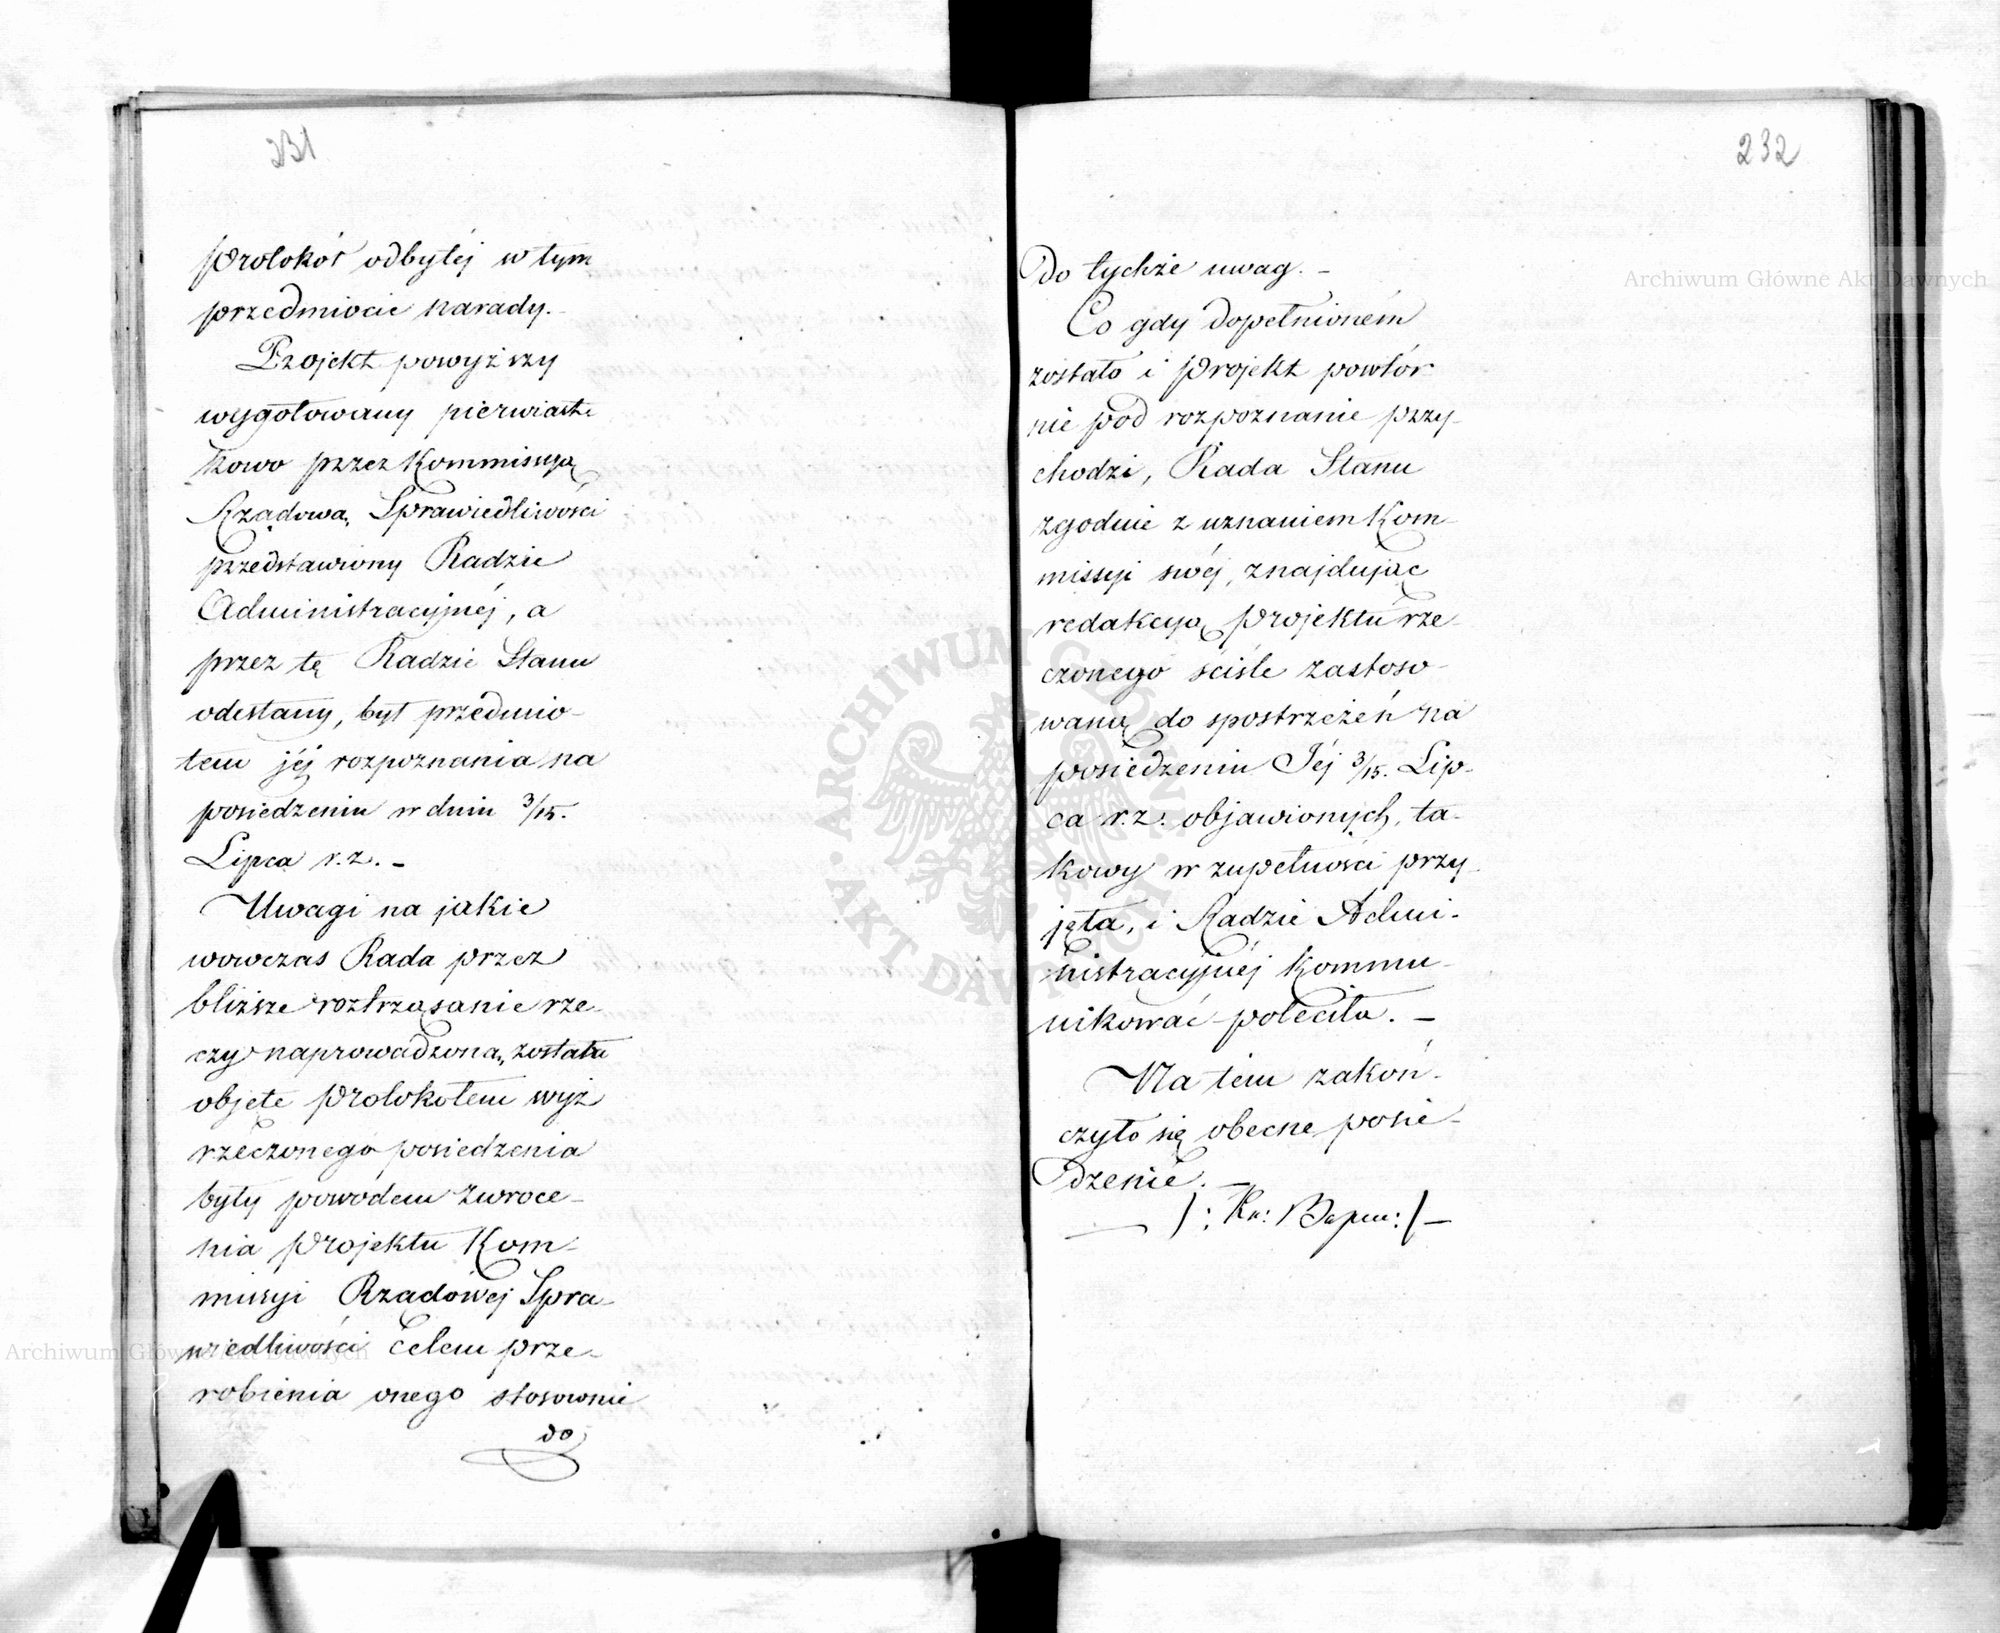 231
protokół odbytéj w tym
przedmiocie narady.
Projekt powyższy
wygotowany pierwiast-
kowo przez Kommissyą
Rządową Sprawiedliwości
przedstawiony Radzie
Administracyjnéj, a
przez tę Radzie Stanu
odesłany, był przedmio-
tem jéj rozpoznania na
posiedzeniu w dniu 3/15.
Lipca r. z. –
Uwagi na jakie
wowczas Rada przez
bliższe roztrząsanie rze-
czy naprowadzoną została
objęte protokołem wyż
rzeczonego posiedzenia
były powodem zwroce-
nia projektu Kom-
missyi Rządowej Spra-
wiedliwości celem prze-
robienia onego stosownie
do
232
do tychże uwag. –
Co gdy dopełnioném
zostało i projekt powtór-
nie pod rozpoznanie przy-
chodzi, Rada Stanu
zgodnie z uznaniem Kom-
missyi swéj, znajdując
redakcyą projektu rze-
czonego ściśle zastoso-
waną do spostrzeżeń na
posiedzeniu Jéj 3/15. Lip-
ca r. z. objawionych, ta-
kowy w zupełności przy-
jęła, i Radzie Admi-
nistracyjnéj kommu-
nikować poleciła. –
Na tem zakoń-
czyło się obecne posie-
dzenie. –
Archiwum Główne Akt Dawnych
Archiwum Główne Akt Dawnych
ARCHIWUM GŁÓWNE · AKT DAWNYCH ·